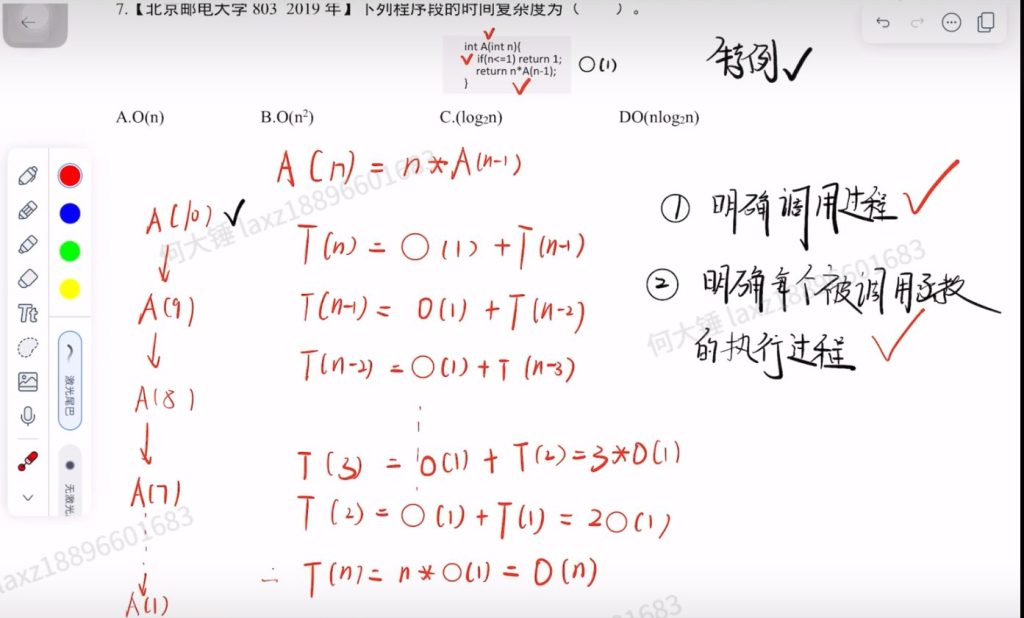 7.【北京邮电大学 803 2019 年】下列程序段的时间复杂度为（ ）。
int A(int n){
if(n<=1) return 1;
return n*A(n-1);
}
○(1)
特例 ✓
A.O(n) B.O(n²) C.(log₂n) DO(nlog₂n)
A(n) = n*A(n-1)
T(n) = ○(1) + T(n-1)
T(n-1) = O(1) + T(n-2)
T(n-2) = ○(1) + T(n-3)
T(3) = O(1) + T(2) = 3*O(1)
T(2) = ○(1) + T(1) = 2○(1)
∴ T(n) = n*○(1) = O(n)
A(10) ✓
↓
A(9)
↓
A(8)
↓
A(7)
↓
A(1)
① 明确调用过程 ✓
② 明确每个被调用函数
的执行过程 ✓
Tt
激光尾巴
无激光
何大锤 laxz18896601683
何大锤 laxz18896601683
laxz18896601683
1683